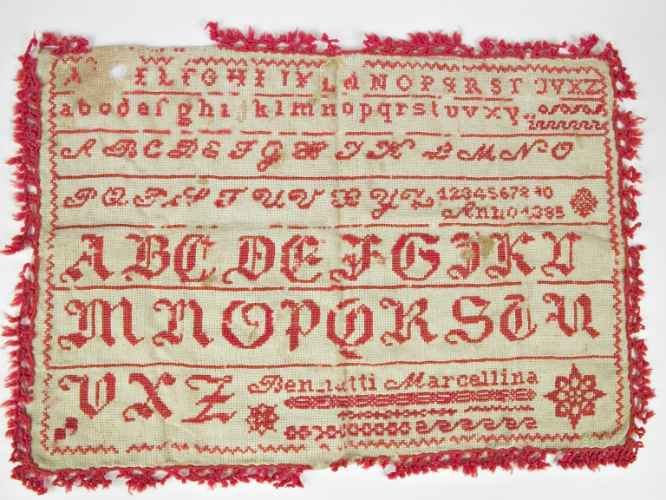 A F G H I J K L M N O P Q R S T U V X Z
a b c d e f g h i k l m n o p q r s t u v x y
A B C D E F G H I K L M N O
P Q R S T U V X Y Z 1 2 3 4 5 6 7 8 9 0
Anno 1885
A B C D E F G I K L
M N O P Q R S T U
V X Z Bennatti Marcellina